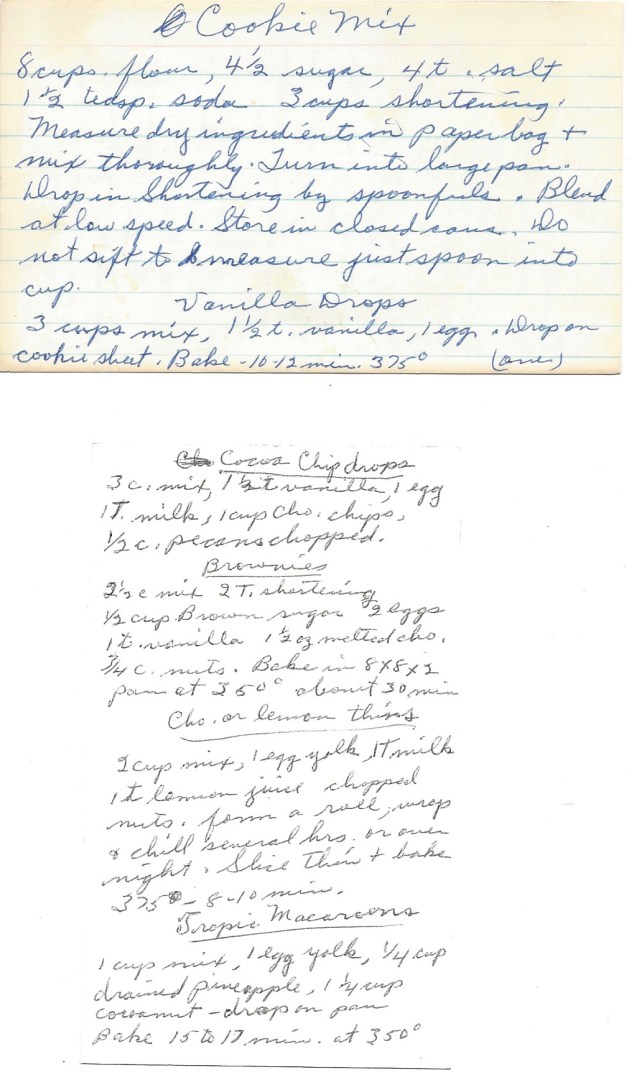 Cookie Mix
8 cups. flour, 4 1/2 sugar, 4 t. salt
1 1/2 teasp. soda 3 cups shortening.
Measure dry ingredients in paper bag +
mix thoroughly. Turn into large pan.
Drop in Shortening by spoonfuls. Blend
at low speed. Store in closed cans. Do
not sift to measure just spoon into
cup.
Vanilla Drops
3 cups mix, 1 1/2 t. vanilla, 1 egg. Drop on
cookie sheet. Bake - 10-12 min. 375° (over)
Cocoa Chip drops
3 c. mix, 1 1/2 t vanilla, 1 egg
1 T. milk, 1 cup Cho. chips,
1/2 c. pecans chopped.
Brownies
2 1/2 c mix 2 T. shortening
1/2 cup Brown sugar 2 eggs
1 t. vanilla 1 1/2 oz melted cho.
3/4 c. nuts. Bake in 8X8X2
pan at 350° about 30 min
Cho. or lemon thins
2 cup mix, 1 egg yolk, 1T milk
1 t lemon juice chopped
nuts. form a roll, wrap
& chill several hrs. or over
night. Slice thin + bake
375° - 8-10 min.
Tropic Macaroons
1 cup mix, 1 egg yolk, 1/4 cup
drained pineapple, 1 1/4 cup
cocoanut - drop on pan
Bake 15 to 17 min. at 350°